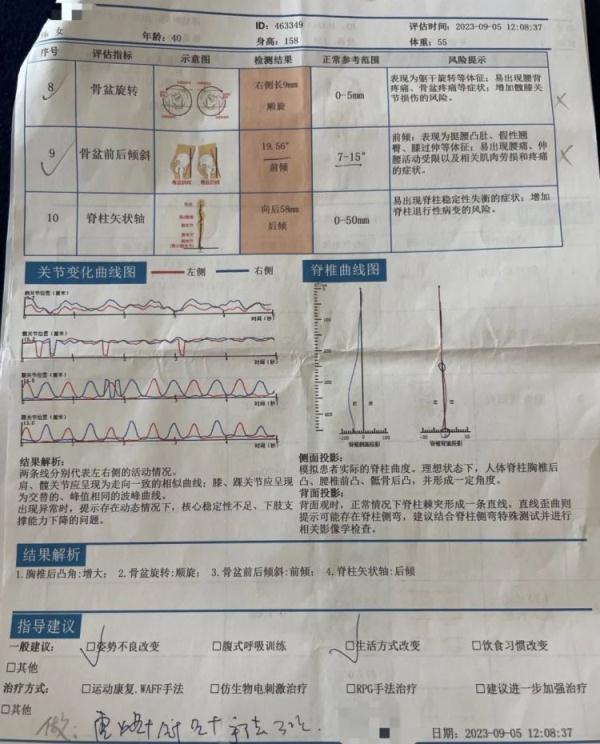 女 年龄: 40 ID: 463349 身高: 158 评估时间: 2023-09-05 12:08:37 体重: 55
序号 评估指标 示意图 检测结果 正常参考范围 风险提示
8 骨盆旋转 右侧长9mm 顺旋 0-5mm 表现为躯干旋转等体征；易出现腰背疼痛、骨盆疼痛等症状；增加髋膝关节损伤的风险。
9 骨盆前后倾斜 19.56° 前倾 7-15° 前倾：表现为挺腰凸肚、假性翘臀、膝过伸等体征；易出现腰痛、伸腰活动受限以及相关肌肉劳损和疼痛的症状。
10 脊柱矢状轴 向后58mm 后倾 0-50mm 易出现脊柱稳定性失衡的症状；增加脊柱退行性病变的风险。
关节变化曲线图 左侧 右侧 脊椎曲线图
时间（秒）
时间（秒）
时间（秒）
时间（秒）
脊椎侧面投影 脊椎背面投影
结果解析：
两条线分别代表左右侧的活动情况。
肩、髋关节应呈现为走向一致的相似曲线；膝、踝关节应呈现
为交替的、峰值相同的波峰曲线。
出现异常时，提示存在动态情况下，核心稳定性不足、下肢支
撑能力下降的问题。
侧面投影：
模拟患者实际的脊柱曲度。理想状态下，人体脊柱胸椎后
凸、腰椎前凸、骶骨后凸，并形成一定角度。
背面投影：
背面观时，正常情况下脊柱棘突形成一条直线，直线歪曲则
提示可能存在脊柱侧弯，建议结合脊柱侧弯特殊测试并进行
相关影像学检查。
结果解析
1.胸椎后凸角:增大； 2.骨盆旋转:顺旋； 3.骨盆前后倾斜:前倾； 4.脊柱矢状轴:后倾
指导建议
一般建议： □姿势不良改变 □腹式呼吸训练 □生活方式改变 □饮食习惯改变
□其他
治疗方式： □运动康复.WAFF手法 □仿生物电刺激治疗 □RPG手法治疗 □建议进一步加强治疗
□其他
做：
日期: 2023-09-05 12:08:37